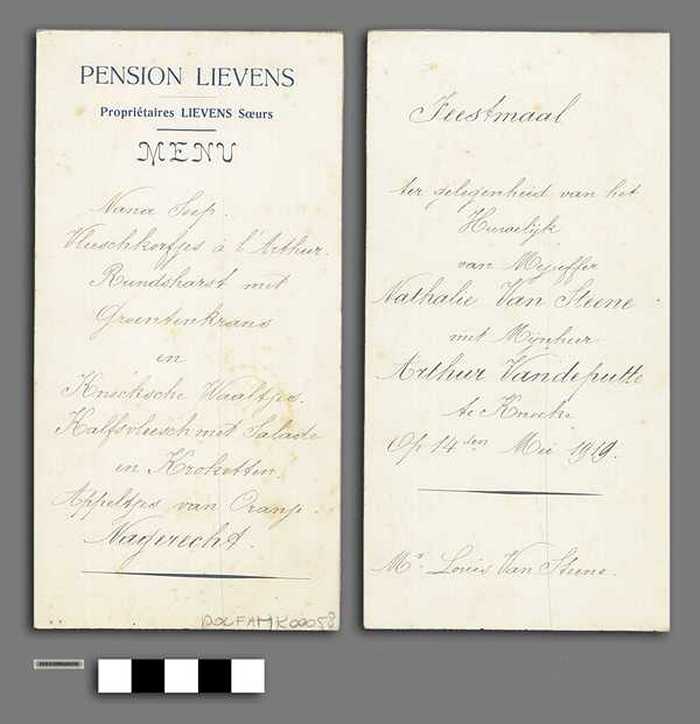 PENSION LIEVENS
Propriétaires LIEVENS Sœurs
MENU
Nana Soep.
Vleeschkorfjes à l'Arthur.
Rundsharst met
Groentenkrans
en
Knocksche Waaltjes.
Kalfsvleesch met Salade
en Kroketten.
Appeltjes van Oranje.
Nagerecht.
DOCFAMK00058
Feestmaal
ter gelegenheid van het
Huwelijk
van Mejuffer
Nathalie Van Steene
met Mijnheer
Arthur Vandeputte
te Knocke
Op 14den Mei 1919.
Mr. Louis Van Steene.